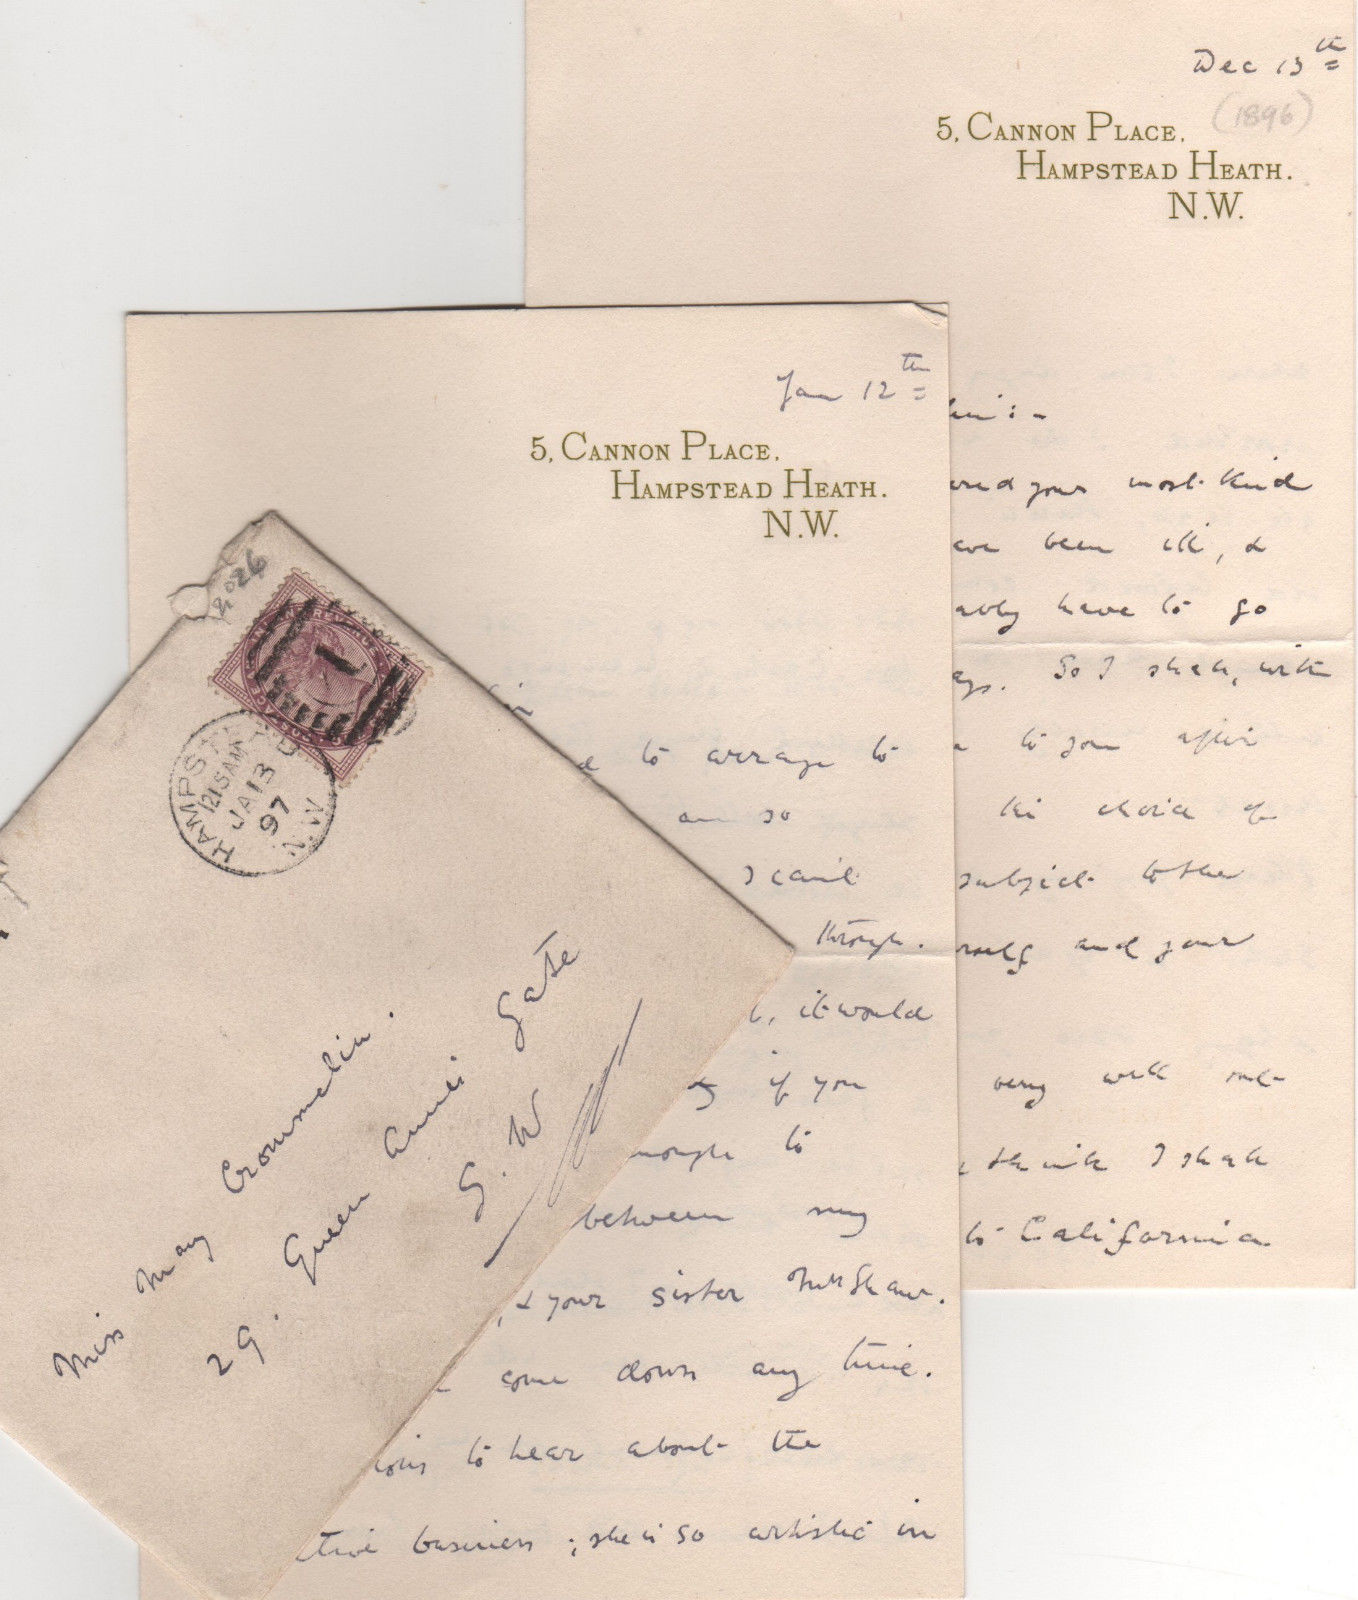 Dec 13th
(1896)
5, CANNON PLACE,
HAMPSTEAD HEATH.
N.W.
your most kind
been ill, &
have to go
So I shall, with
to you after
the choice of
subject to the
and your
very well
think I shall
to California
Jan 12th
5, CANNON PLACE,
HAMPSTEAD HEATH.
N.W.
to arrange to
am so
I can't
through.
it would
if you
to
between my
& your sister Mrs Shaw.
come down any time.
to hear about the
business; she is so artistic in
2026
HAMPSTEAD N.W.
1215AM
JA 13
97
Miss May Crommelin.
29. Queen Anne's Gate
S.W